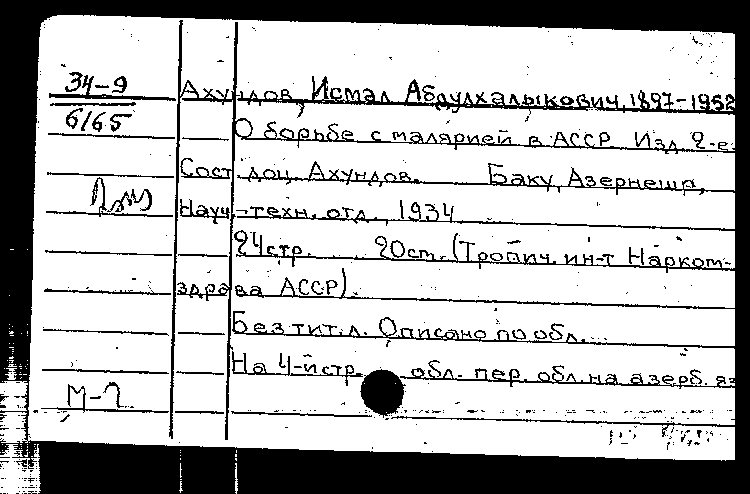 34-9
6165
Ахундов, Исмал Абдулхалыкович, 1897-1952
О борьбе с малярией в АССР Изд. 2-е
Сост. доц. Ахундов. Баку, Азернешр,
Науч.-техн. отд., 1934
24стр. 20см. (Тропич. ин-т Нарком-
здрава АССР).
Без тит. л. Описано по обл...
На 4-й стр. обл. пер. обл. на азерб. яз
М-2